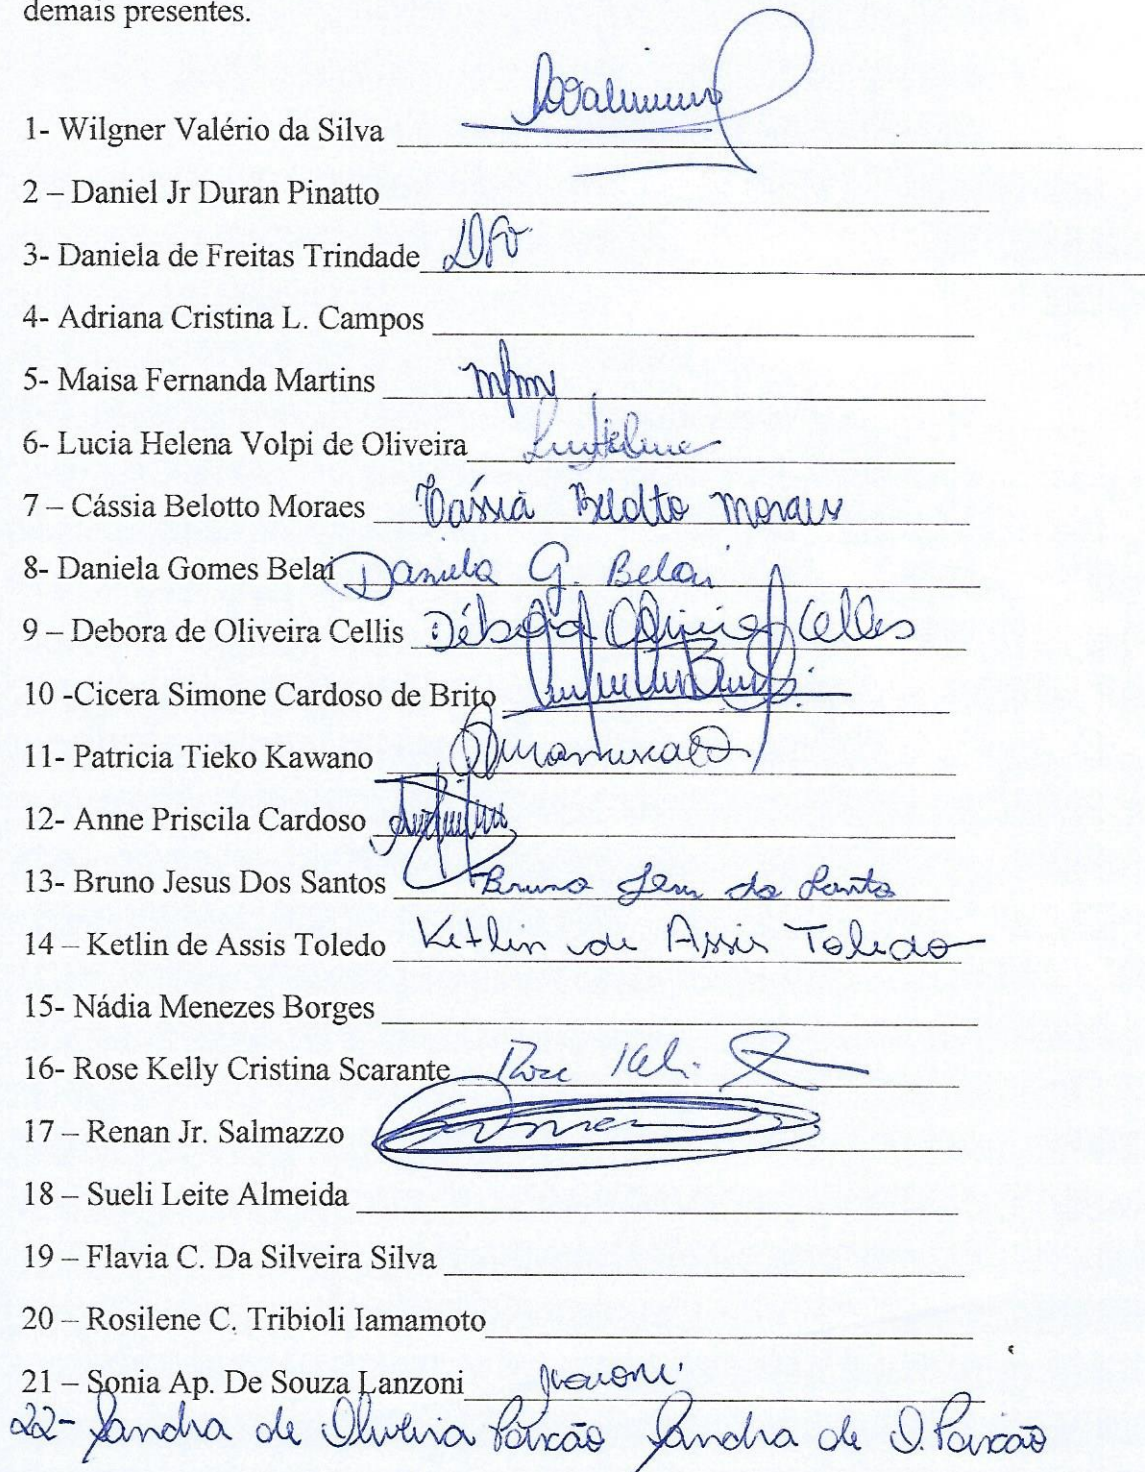 demais presentes.
1- Wilgner Valério da Silva
2 – Daniel Jr Duran Pinatto
3- Daniela de Freitas Trindade
4- Adriana Cristina L. Campos
5- Maisa Fernanda Martins
6- Lucia Helena Volpi de Oliveira
7 – Cássia Belotto Moraes Cássia Belotto Moraes
8- Daniela Gomes Belai Daniela G. Belai
9 – Debora de Oliveira Cellis Débora Oliveira Celles
10 -Cicera Simone Cardoso de Brito
11- Patricia Tieko Kawano
12- Anne Priscila Cardoso
13- Bruno Jesus Dos Santos Bruno Jesus dos Santos
14 – Ketlin de Assis Toledo Ketlin de Assis Toledo
15- Nádia Menezes Borges
16- Rose Kelly Cristina Scarante Rose Keli
17 – Renan Jr. Salmazzo
18 – Sueli Leite Almeida
19 – Flavia C. Da Silveira Silva
20 – Rosilene C. Tribioli Iamamoto
21 – Sonia Ap. De Souza Lanzoni
22- Sandra de Oliveira Paixão Sandra de O. Paixão